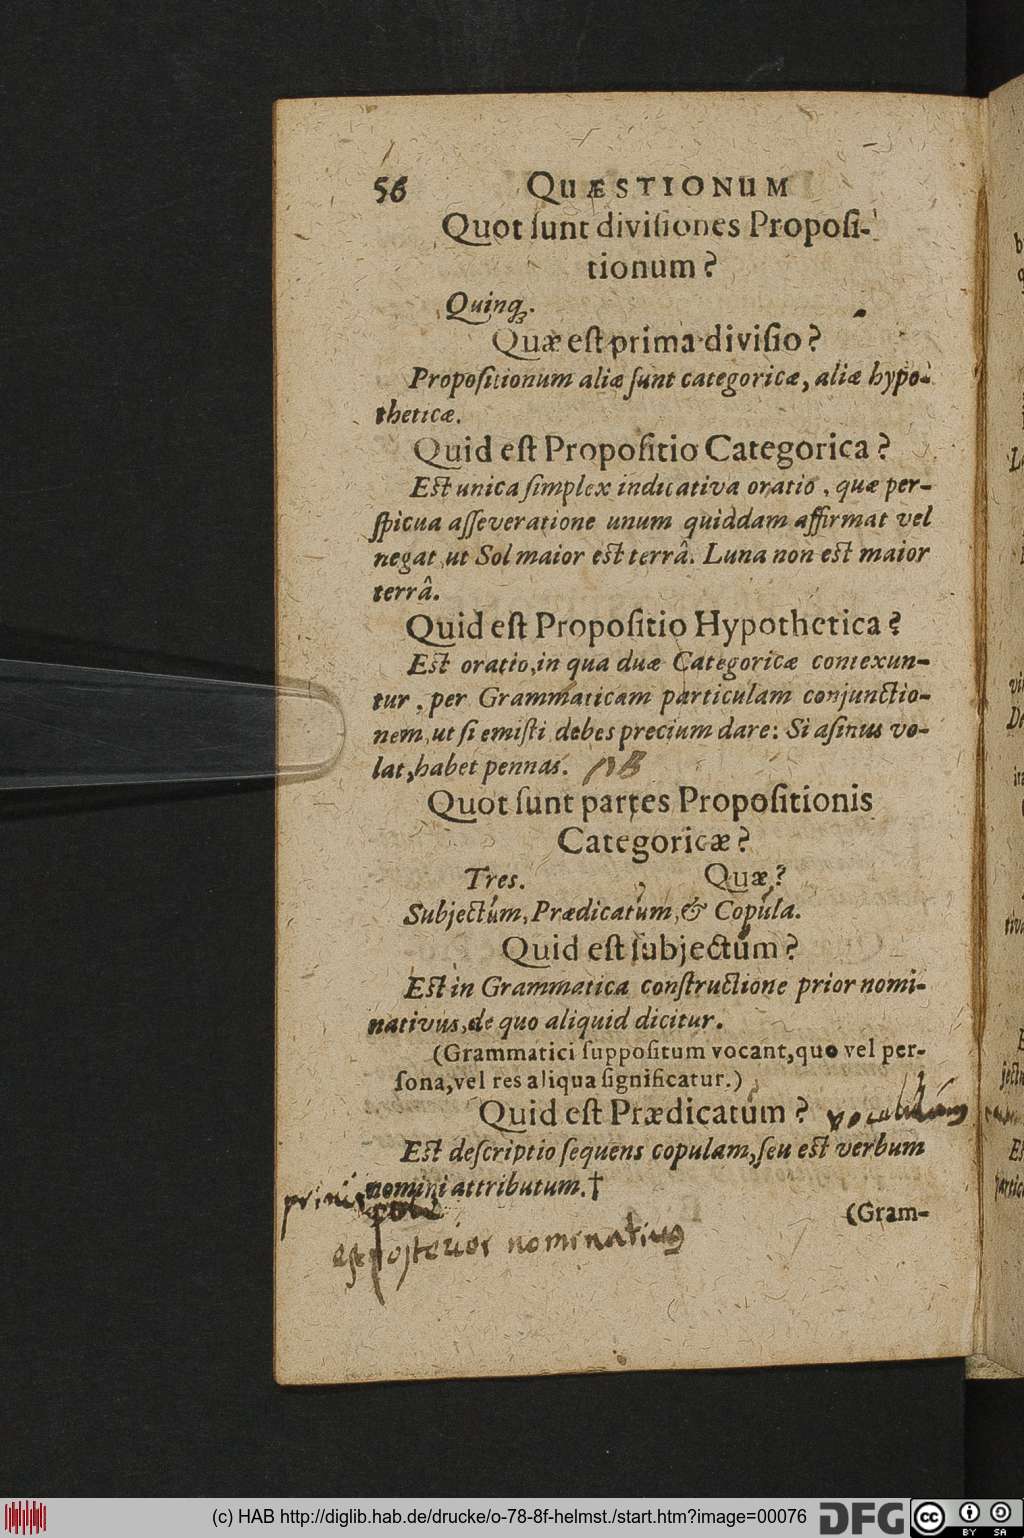 56 QUÆSTIONUM
Quot sunt divisiones Proposi-
tionum?
Quinq;.
Quæ est prima divisio?
Propositionum aliæ sunt categoricæ, aliæ hypo-
theticæ.
Quid est Propositio Categorica?
Est unica simplex indicativa oratio, quæ per-
spicua asseveratione unum quiddam affirmat vel
negat, ut Sol maior est terrâ. Luna non est maior
terrâ.
Quid est Propositio Hypothetica?
Est oratio, in qua duæ Categoricæ contexun-
tur, per Grammaticam particulam conjunctio-
nem, ut si emisti, debes precium dare: Si asinus vo-
lat, habet pennas.
Quot sunt partes Propositionis
Categoricæ?
Tres. Quæ?
Subjectum, Prædicatum, & Copula.
Quid est subjectum?
Est in Grammatica constructione prior nomi-
nativus, de quo aliquid dicitur.
(Grammatici suppositum vocant, quo vel per-
sona, vel res aliqua significatur.)
Quid est Prædicatum?
Est descriptio sequens copulam, seu est verbum
nomini attributum.†
(Gram-
posterior nominativus
(c) HAB http://diglib.hab.de/drucke/o-78-8f-helmst./start.htm?image=00076
DFG
cc
BY SA